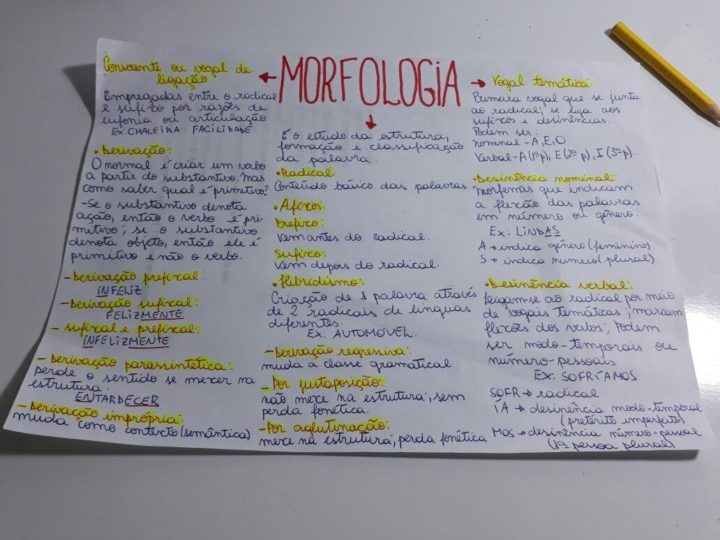 MORFOLOGIA
Consoante ou vogal de
ligação
Empregadas entre o radical
e sufixo por razões de
eufonia ou articulação
Ex: CHALEIRA FACILIDADE
• Derivação:
O normal é criar um verbo
a partir do substantivo. Mas
como saber qual é primitivo?
- Se o substantivo denota
ação, então o verbo é pri-
mitivo; se o substantivo
denota objeto, então ele é
primitivo e não o verbo.
- Derivação prefixal:
INFELIZ
- Derivação sufixal:
FELIZMENTE
- sufixal e prefixal:
INFELIZMENTE
- Derivação parassintética:
perde o sentido se mexer na
estrutura.
ENTARDECER
- Derivação imprópria:
muda como contexto (semântica)
É o estudo da estrutura,
formação e classificação
da palavra.
• Radical
Conteúdo básico das palavras
• Afixos:
Prefixo:
Vem antes do radical.
Sufixo:
Vem depois do radical.
• Hibridismo:
Criação de 1 palavra através
de 2 radicais de línguas
diferentes.
Ex: AUTOMÓVEL
- Derivação regressiva:
muda a classe gramatical
- Por justaposição:
não mexe na estrutura; sem
perda fonética.
- Por aglutinação:
mexe na estrutura; perda fonética
Vogal temática:
Primeira vogal que se junta
ao radical; se liga aos
sufixos e desinências.
Podem ser:
nominal - A, E, O
Verbal - A (1ª p), E (2ª p), I (3ª p)
• Desinência nominal:
morfemas que indicam
a flexão das palavras
em número ou gênero.
Ex: LINDAS
A → indica gênero (feminino)
S → indica número (plural)
• Desinência verbal:
ligam-se ao radical por meio
de vogais temáticas; marcam
flexões dos verbos; Podem
ser modo-temporais ou
número-pessoais
Ex: SOFRÍAMOS
SOFR → radical
IA → desinência modo-temporal
(pretérito imperfeito)
MOS → desinência número-pessoal
(1ª pessoa plural)